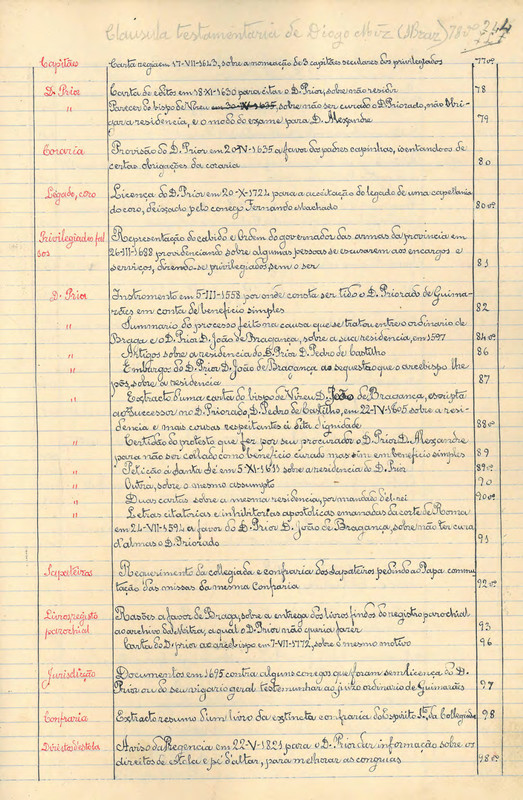 Clausula testamentaria de Diogo Miz (Braz) 78vº 244
Capitães Carta regia em 17-VII-1643, sobre a nomeação de 3 capitães seculares dos privilegiados 77vº
D. Prior Carta de Leitos em 18-XI-1630 para citar o D. Prior, sobre não residir 78
" Parecer do bispo de Viseu em 30-XI-1635, sobre não ser curado o D. Priorado, não obri-
gar a residencia, e o modo do exame para D. Alexandre 79
Coraria Provisão do D. Prior em 20-IV-1635 a favor dos padres capinhas, isentando-os de
certas obrigações da coraria 80
Legado, coro Licença do D. Prior em 20-X-1724 para a aceitação do legado de uma capellania
do coro, deixado pelo conego Fernando Machado 80vº
Privilegiados fal Representação do cabido e ordem do governador das armas da provincia em
sos 26-III-1688 providenciando sobre algumas pessoas se escusarem aos encargos e
serviços, dizendo-se privilegiados sem o ser 81
D. Prior Instrumento em 5-III-1558 por onde consta ser tido o D. Priorado de Guima-
rães em conta de beneficio simples 82
" Summario do processo feito na causa que se tratou entre o ordinario de
Braga e o D. Prior D. João de Bragança, sobre a sua residencia, em 1597 84vº
" Artigos sobre a residencia do D. Prior D. Pedro de Castilho 86
" Embargo do D. Prior D. João de Bragança ao sequestro que o arcebispo lhe
pôs, sobre a residencia 87
" Extracto d'uma carta do bispo de Viseu D. João de Bragança, escripta
ao successor no D. Priorado, D. Pedro de Castilho, em 22-IV-1605 sobre a resi-
dencia e mais cousas respeitantes á dita dignidade 88vº
" Certidão do protesto que fez por seu procurador o D. Prior D. Alexandre
para não ser collado como beneficio curado mas sim em beneficio simples 89
" Petição á Santa Sé em 5-XI-1611 sobre a residencia do D. Prior 89vº
" Outra, sobre o mesmo assumpto 90
" Duas cartas sobre a mesma residencia, por mandado d'el-rei 90vº
" Letras citatorias e inhibitorias apostolicas emanadas da corte de Roma
em 24-VII-1594 a favor do D. Prior D. João de Bragança, sobre não ter cura
d'almas o D. Priorado 91
Sapateiros Requerimento da collegiada e confraria dos sapateiros pedindo ao Papa commu-
tação das missas da mesma confraria 92vº
Livros registo Rasões a favor de Braga, sobre a entrega dos livros findos do registro parochial
parochial ao archivo da Mitra, a qual o D. Prior não queria fazer 93
Carta do D. prior ao arcebispo em 7-VII-1772, sobre o mesmo motivo 96
Jurisdicção Documentos em 1695 contra alguns conegos que foram sem licença do D.
Prior ou do seu vigario geral testemunhar ao juizo ordinario de Guimarães 97
Confraria Extracto resumo d'um livro da extincta confraria do Espirito Stº da Collegiada 98
Direitos d'estola Aviso da Regencia em 22-V-1821 para o D. Prior dar informação sobre os
direitos de estola e pé d'altar, para melhorar as congruas. 98vº